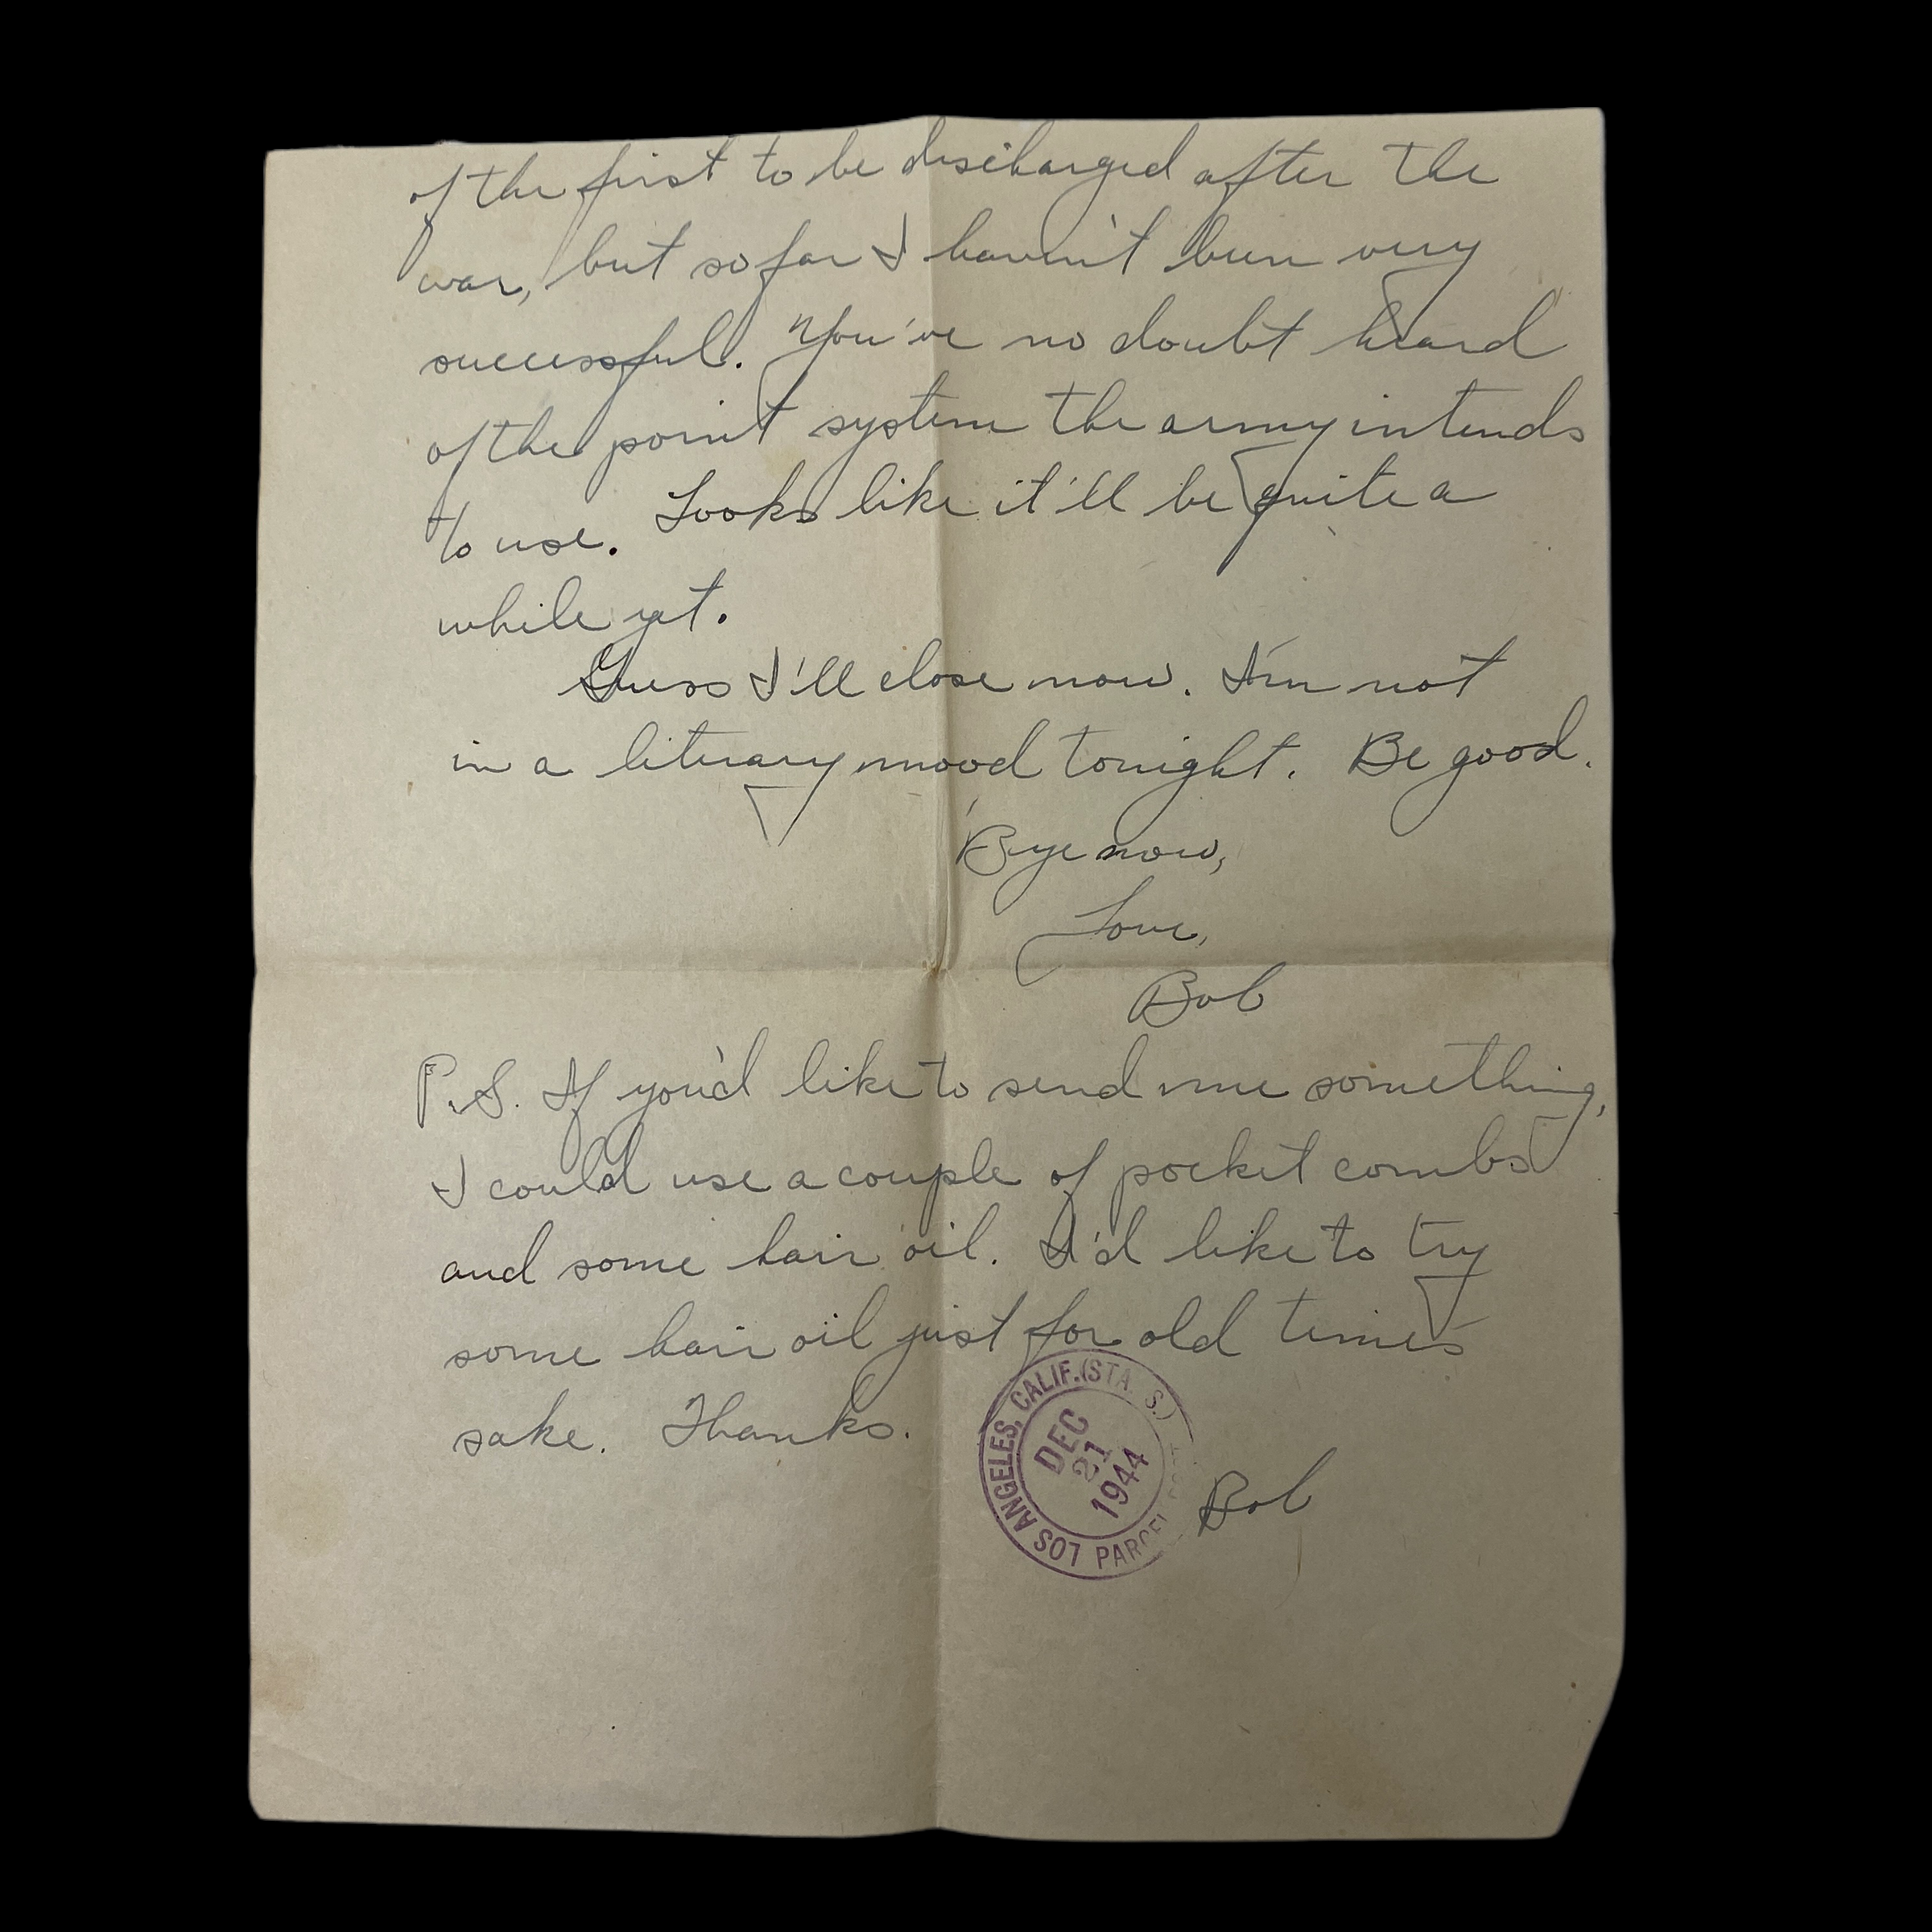 of the first to be discharged after the
war, but so far I haven't been very
successful. You've no doubt heard
of the point system the army intends
to use. Looks like it'll be quite a
while yet.
Guess I'll close now. I'm not
in a literary mood tonight. Be good.
'Bye now,
Love,
Bob
P.S. If you'd like to send me something,
I could use a couple of pocket combs
and some hair oil. I'd like to try
some hair oil just for old time's
sake. Thanks.
LOS ANGELES, CALIF. (STA. S.)
DEC
21
1944
PARCEL POST
Bob